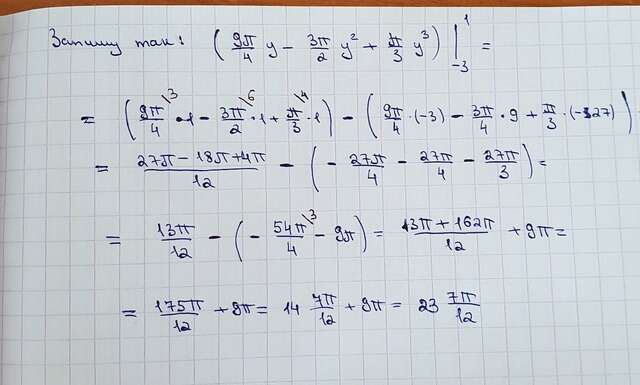 Запишу так: (9π/4 y - 3π/2 y² + π/3 y³) |₋₃¹ =
= (9π/4 \3 · 1 - 3π/2 \6 · 1 + π/3 \4 · 1) - (9π/4 · (-3) - 3π/4 · 9 + π/3 · (-27))
= (27π - 18π + 4π)/12 - (- 27π/4 - 27π/4 - 27π/3) =
= 13π/12 - (- 54π/4 \3 - 9π) = (13π + 162π)/12 + 9π =
= 175π/12 + 9π = 14 7π/12 + 9π = 23 7π/12